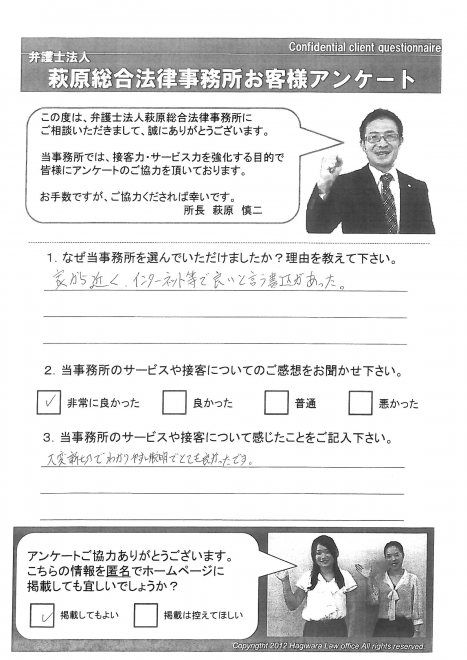 Confidential client questionnaire
弁護士法人
萩原総合法律事務所お客様アンケート
この度は、弁護士法人萩原総合法律事務所に
ご相談いただきまして、誠にありがとうございます。
当事務所では、接客力・サービス力を強化する目的で
皆様にアンケートのご協力を頂いております。
お手数ですが、ご協力くだされば幸いです。
所長 萩原 慎二
1. なぜ当事務所を選んでいただけましたか？理由を教えて下さい。
家から近く、インターネット等で良いと言う書込があった。
2. 当事務所のサービスや接客についてのご感想をお聞かせ下さい。
✓ 非常に良かった 良かった 普通 悪かった
3. 当事務所のサービスや接客について感じたことをご記入下さい。
大変親切でわかりやすい説明でとても良かったです。
アンケートご協力ありがとうございます。
こちらの情報を匿名でホームページに
掲載しても宜しいでしょうか？
✓ 掲載してもよい 掲載は控えてほしい
Copyright 2012 Hagiwara Law office All rights reserved